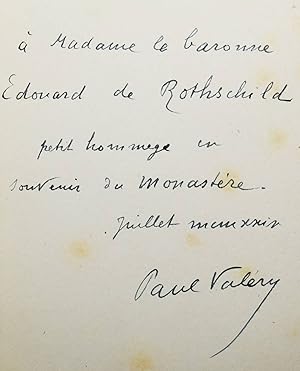 à Madame la baronne
Edouard de Rothschild
petit hommage en
souvenir du Monastère.
Juillet mcmxxiv
Paul Valéry